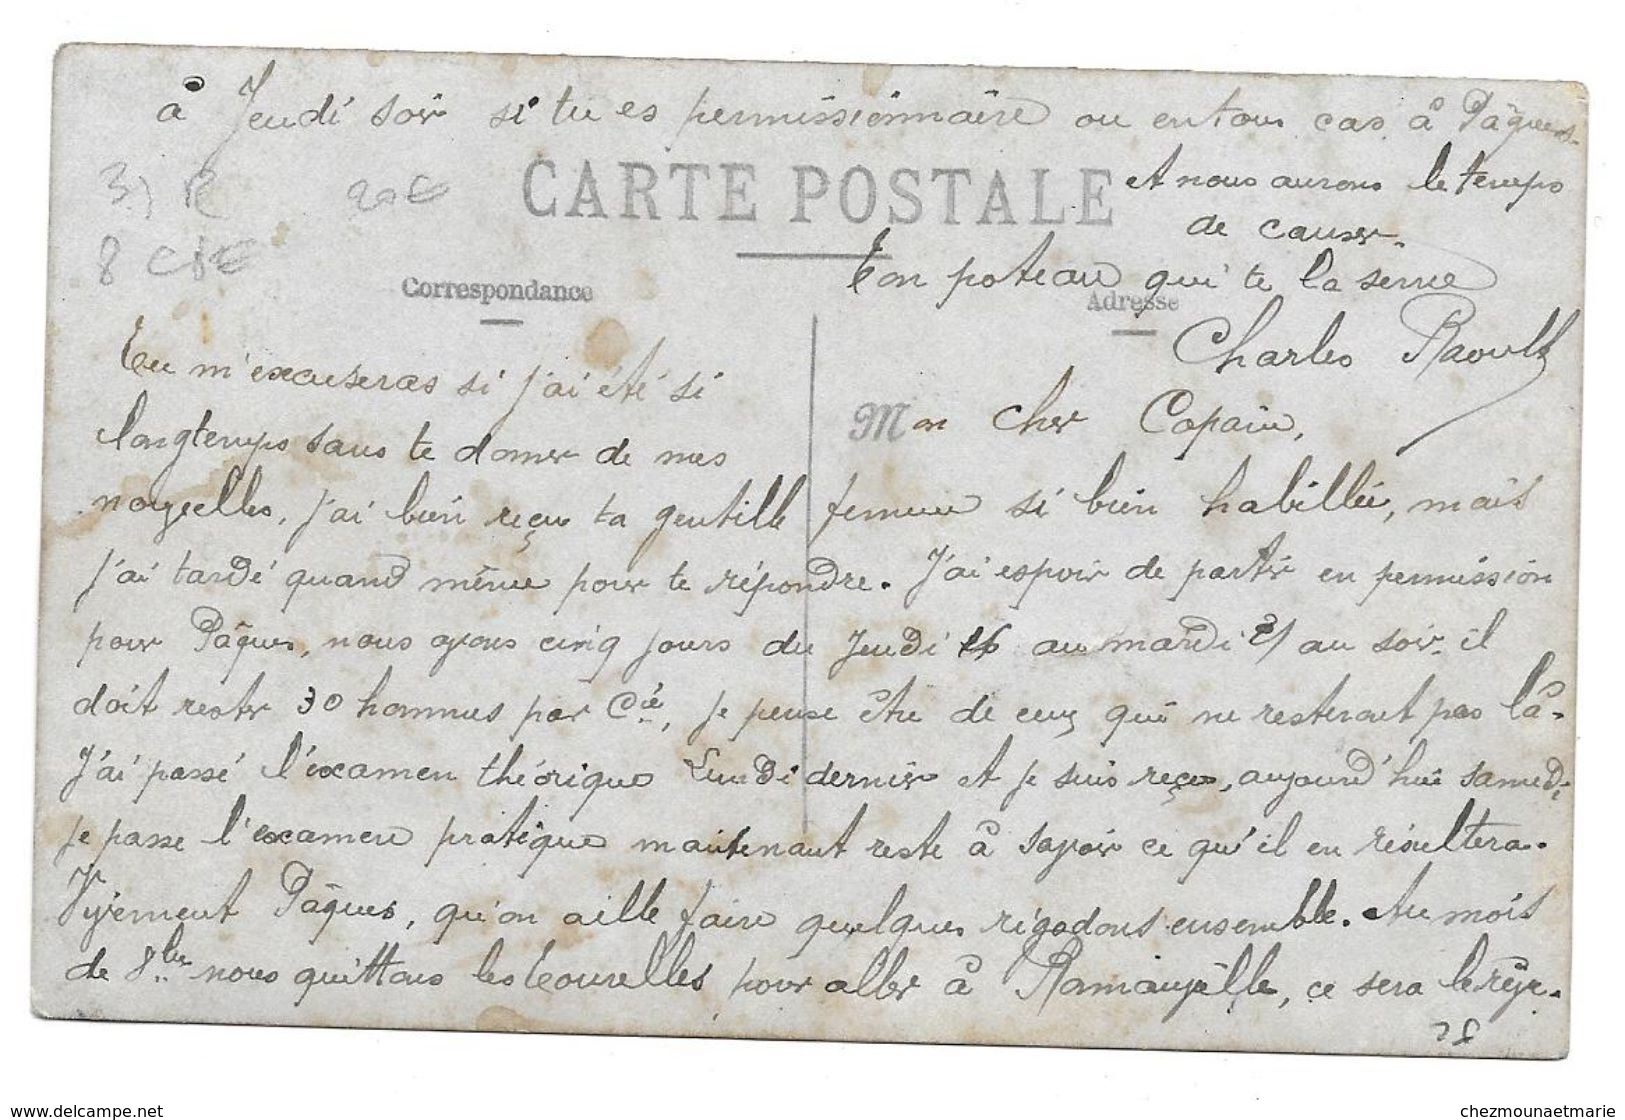 à Jeudi soir si tu es permissionnaire ou en tous cas à Pâques
et nous aurons le temps
de causer.
Ton poteau qui te la serre
Charles Raoult
CARTE POSTALE
20€
8
Correspondance
Adresse
Mon cher Copain,
Tu m'excuseras si j'ai été si
longtemps sans te donner de mes
nouvelles, j'ai bien reçu ta gentille femme si bien habillée, mais
j'ai tardé quand même pour te répondre. J'ai espoir de partir en permission
pour Pâques, nous avons cinq jours du Jeudi 16 au mardi 21 au soir. il
doit rester 30 hommes par Cie, je pense être de ceux qui ne resteront pas là.
J'ai passé l'examen théorique Lundi dernier et je suis reçu, aujourd'hui samedi
je passe l'examen pratique maintenant reste à savoir ce qu'il en résultera.
Vivement Pâques, qu'on aille faire quelques rigodons ensemble. Au mois
de 8bre nous quittons les Tourelles pour aller à Romainville, ce sera le rêve.
chezmounaetmarie
www.delcampe.net